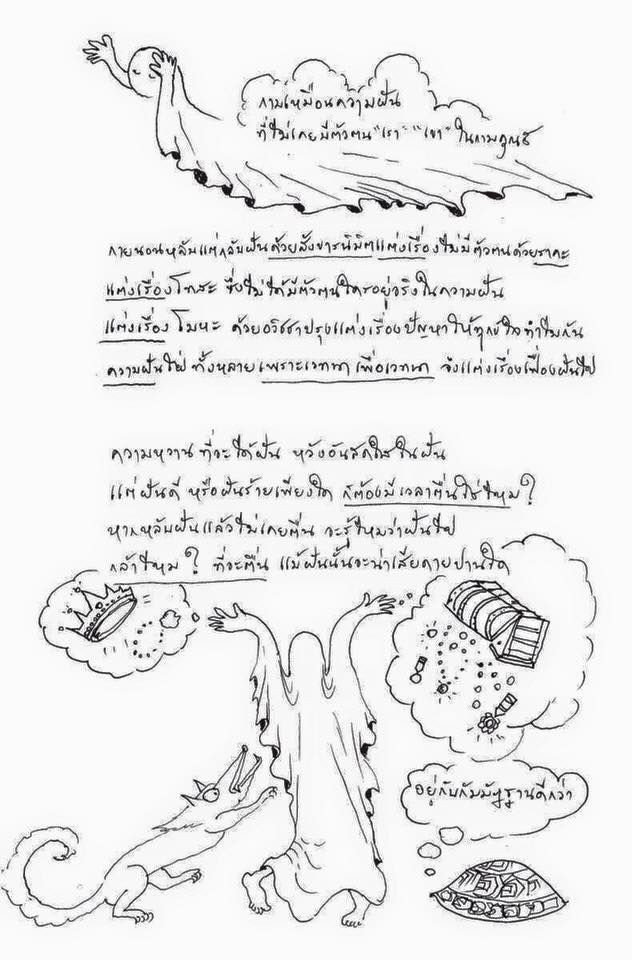 กามเหมือนความฝัน
ที่ไม่เคยมีตัวตน "เรา" "เขา" ในกามคุณ๕
กายนอนหลับแต่กลับฝันด้วยสังขารนิมิตแต่งเรื่องไม่มีตัวตนด้วยราคะ
แต่งเรื่องโทสะ ซึ่งไม่ได้มีตัวตนใครอยู่จริงในความฝัน
แต่งเรื่องโมหะ ด้วยอวิชชาปรุงแต่งเรื่องปัญหาให้ทุกข์ใจทำไมกัน
ความฝันใฝ่ ทั้งหลายเพราะเวทนา เพื่อเวทนา จึงแต่งเรื่องเฟื่องฝันไป
ความหวาน ที่จะได้ฝัน หวังอันสดใสในฝัน
แต่ฝันดี หรือฝันร้ายเพียงใด ก็ต้องมีเวลาตื่นใช่ไหม?
หากหลับฝันแล้วไม่เคยตื่น จะรู้ไหมว่าฝันไป
กล้าไหม? ที่จะตื่น แม้ฝันนั้นจะน่าเสียดายปานใด
อยู่กับกัมมัฏฐานดีกว่า